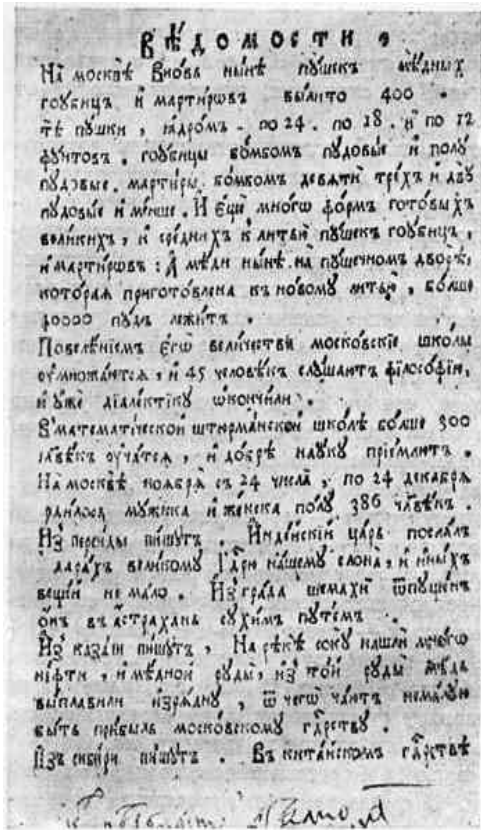 ВѢ́ДОМОСТИ
На москвѣ̀ вновь ны́нѣ пу́шекъ мѣ́дныхъ
гоубицъ и҆ мартировъ вы́лито 400.
тѣ̀ пу́шки, ꙗ҆дромъ. по 24. по 18. и҆ по 12
фу́нтовъ. гоубицы бо́мбомъ пудовые и҆ полу
пудовые. мартиры бо́мбомъ девѧти̂ тре́хъ и҆ двꙋ̀
пудовые и҆ ме́нше. И҆ є҆щѐ мно́гѡ фо́рмъ гото́выхъ
вели́кихъ, и҆ сре́днихъ к̾ литью̀ пу́шекъ гоубицъ,
и҆ мартировъ: А҆ мѣди ны́нѣ на̀ пу́шечномъ дворѣ̀,
кото́раѧ пригото́влена къ но́вому литью̀, бо́лше
40000 пудъ лежи́тъ.
Повелѣ́нїемъ є҆гѡ̀ вели́чества моско́вскїе шко́лы
оу҆множа́ютсѧ, и҆ 45 человѣ́къ слꙋ́шаютъ фїлосо́фїю,
и҆ оу҆жѐ дїале́ктїкꙋ ѡ҆ко́нчили.
В̾ математи́ческой штюрма́нской шко́лѣ бо́лше 300
чл҃вѣкъ оу҆́чатсѧ, и҆ до́брѣ наꙋ́кꙋ прїе́млютъ.
На москвѣ̀ ноѧбрѧ̀ съ 24 числа̀, по 24 декабрѧ̀
роди́лось мꙋ́жеска и҆ же́нска по́лꙋ 386 чл҃вѣкъ.
И҆з̾ перси́ды пи́шꙋтъ. И҆нде́йскїй ца́рь посла́лъ
в̾ дара́хъ вели́комꙋ Гдⷭ҇рю на́шемꙋ слона̀, и҆ и҆ны́хъ
веще́й не ма́ло. И҆з̾ гра́да шемахѝ ѿпꙋ́щенъ
ѻ҆нъ въ а́страхань сꙋхи́мъ пꙋте́мъ.
И҆з̾ каза́ни пи́шꙋтъ, На рѣкѣ̀ сокꙋ̀ нашлѝ мно́гѡ
не́фти, и҆ мѣ́дной рꙋды̀, и҆з̾ то́й рꙋды̀ мѣ́дь
вы́плавили и҆зрѧ́днꙋ, ѿ чегѡ̀ ча́ютъ нема́лꙋю
бы́ть при́быль моско́вскомꙋ гдⷭ҇рствꙋ.
И҆зъ сиби́ри пи́шꙋтъ. Въ кита́йскомъ гдⷭ҇рствѣ